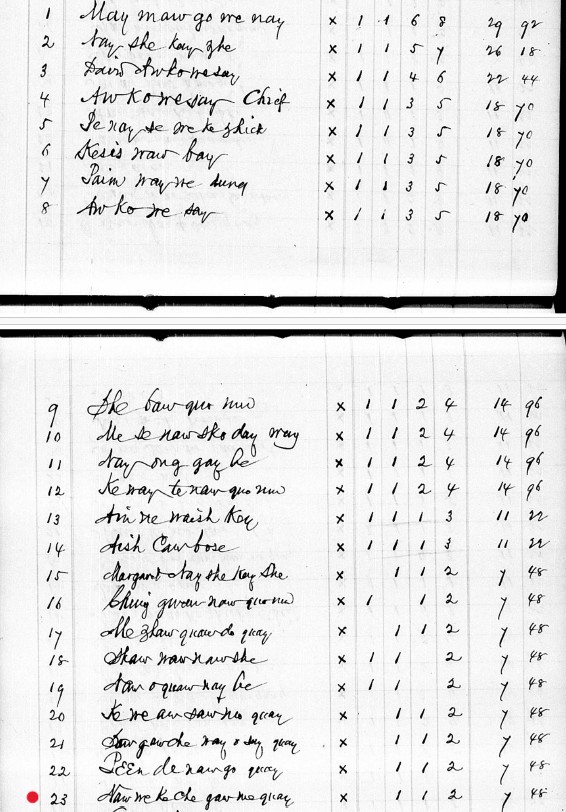 1 May maw go we nay x 1 1 6 8 29 92
2 Nay she kay zhe x 1 1 5 7 26 18
3 David Awkowesay x 1 1 4 6 22 44
4 Awkowesay Chief x 1 1 3 5 18 70
5 Pe nay se we ke zhick x 1 1 3 5 18 70
6 Kesis waw bay x 1 1 3 5 18 70
7 Paim way we dung x 1 1 3 5 18 70
8 Aw ko we say x 1 1 3 5 18 70
9 She baw quo num x 1 1 2 4 14 96
10 Me se naw sko day way x 1 1 2 4 14 96
11 Nay ong gay be x 1 1 2 4 14 96
12 Ke way te naw quo num x 1 1 2 4 14 96
13 Ain ne waish Key x 1 1 1 3 11 22
14 Aish Caw bose x 1 1 1 3 11 22
15 Margaret Nay she Kay She x 1 1 2 7 48
16 naw quo num x 1 1 2 7 48
17 Me zhaw quaw do quay x 1 1 2 7 48
18 Shaw waw naw she x 1 1 2 7 48
19 Naw o quaw nay be x 1 1 2 7 48
20 Ke we aw saw mo quay x 1 1 2 7 48
21 gaw che way o say quay x 1 1 2 7 48
22 PEEn de naw go quay x 1 1 2 7 48
23 Naw we ke che gaw me quay x 1 1 2 7 48